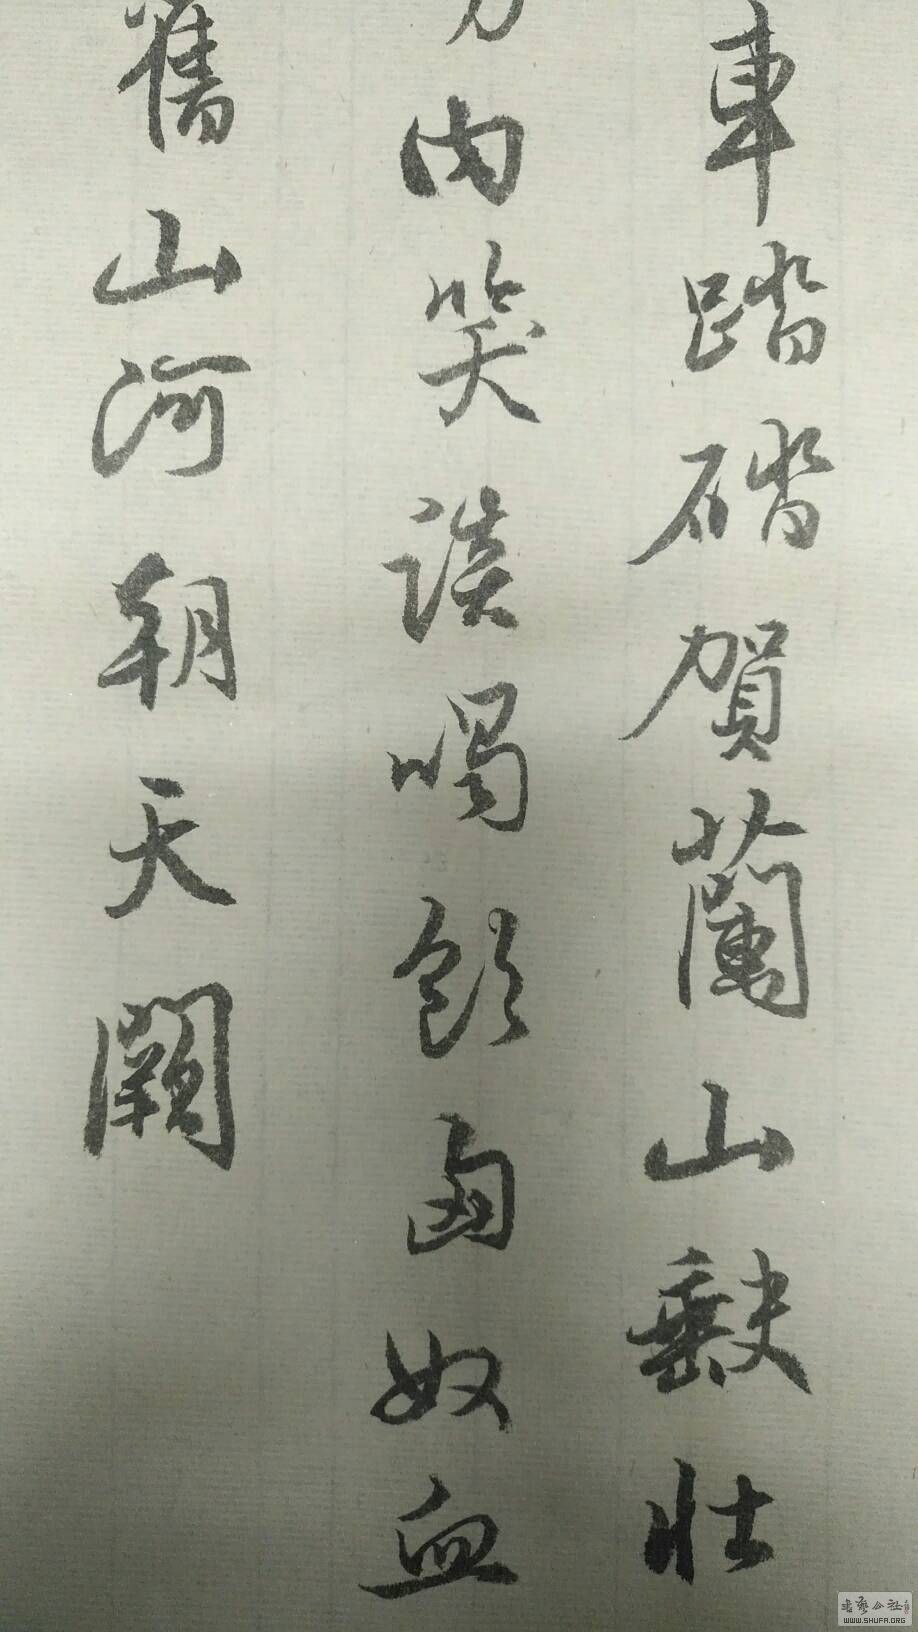 車踏碏賀蘭山缺壯
肉笑談喝飲匈奴血
舊山河朝天闕
WWW.SHUFA.ORG